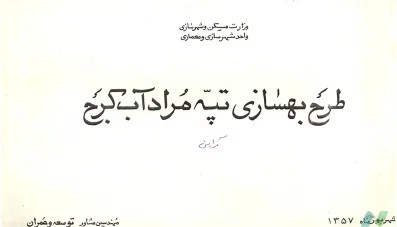 وزارت مسکن و شهرسازی
واحد شهرسازی و معماری
طرح بهسازی تپه مراد آب کرج
شهریور ماه ۱۳۵۷
مهندسین مشاور توسعه و عمران